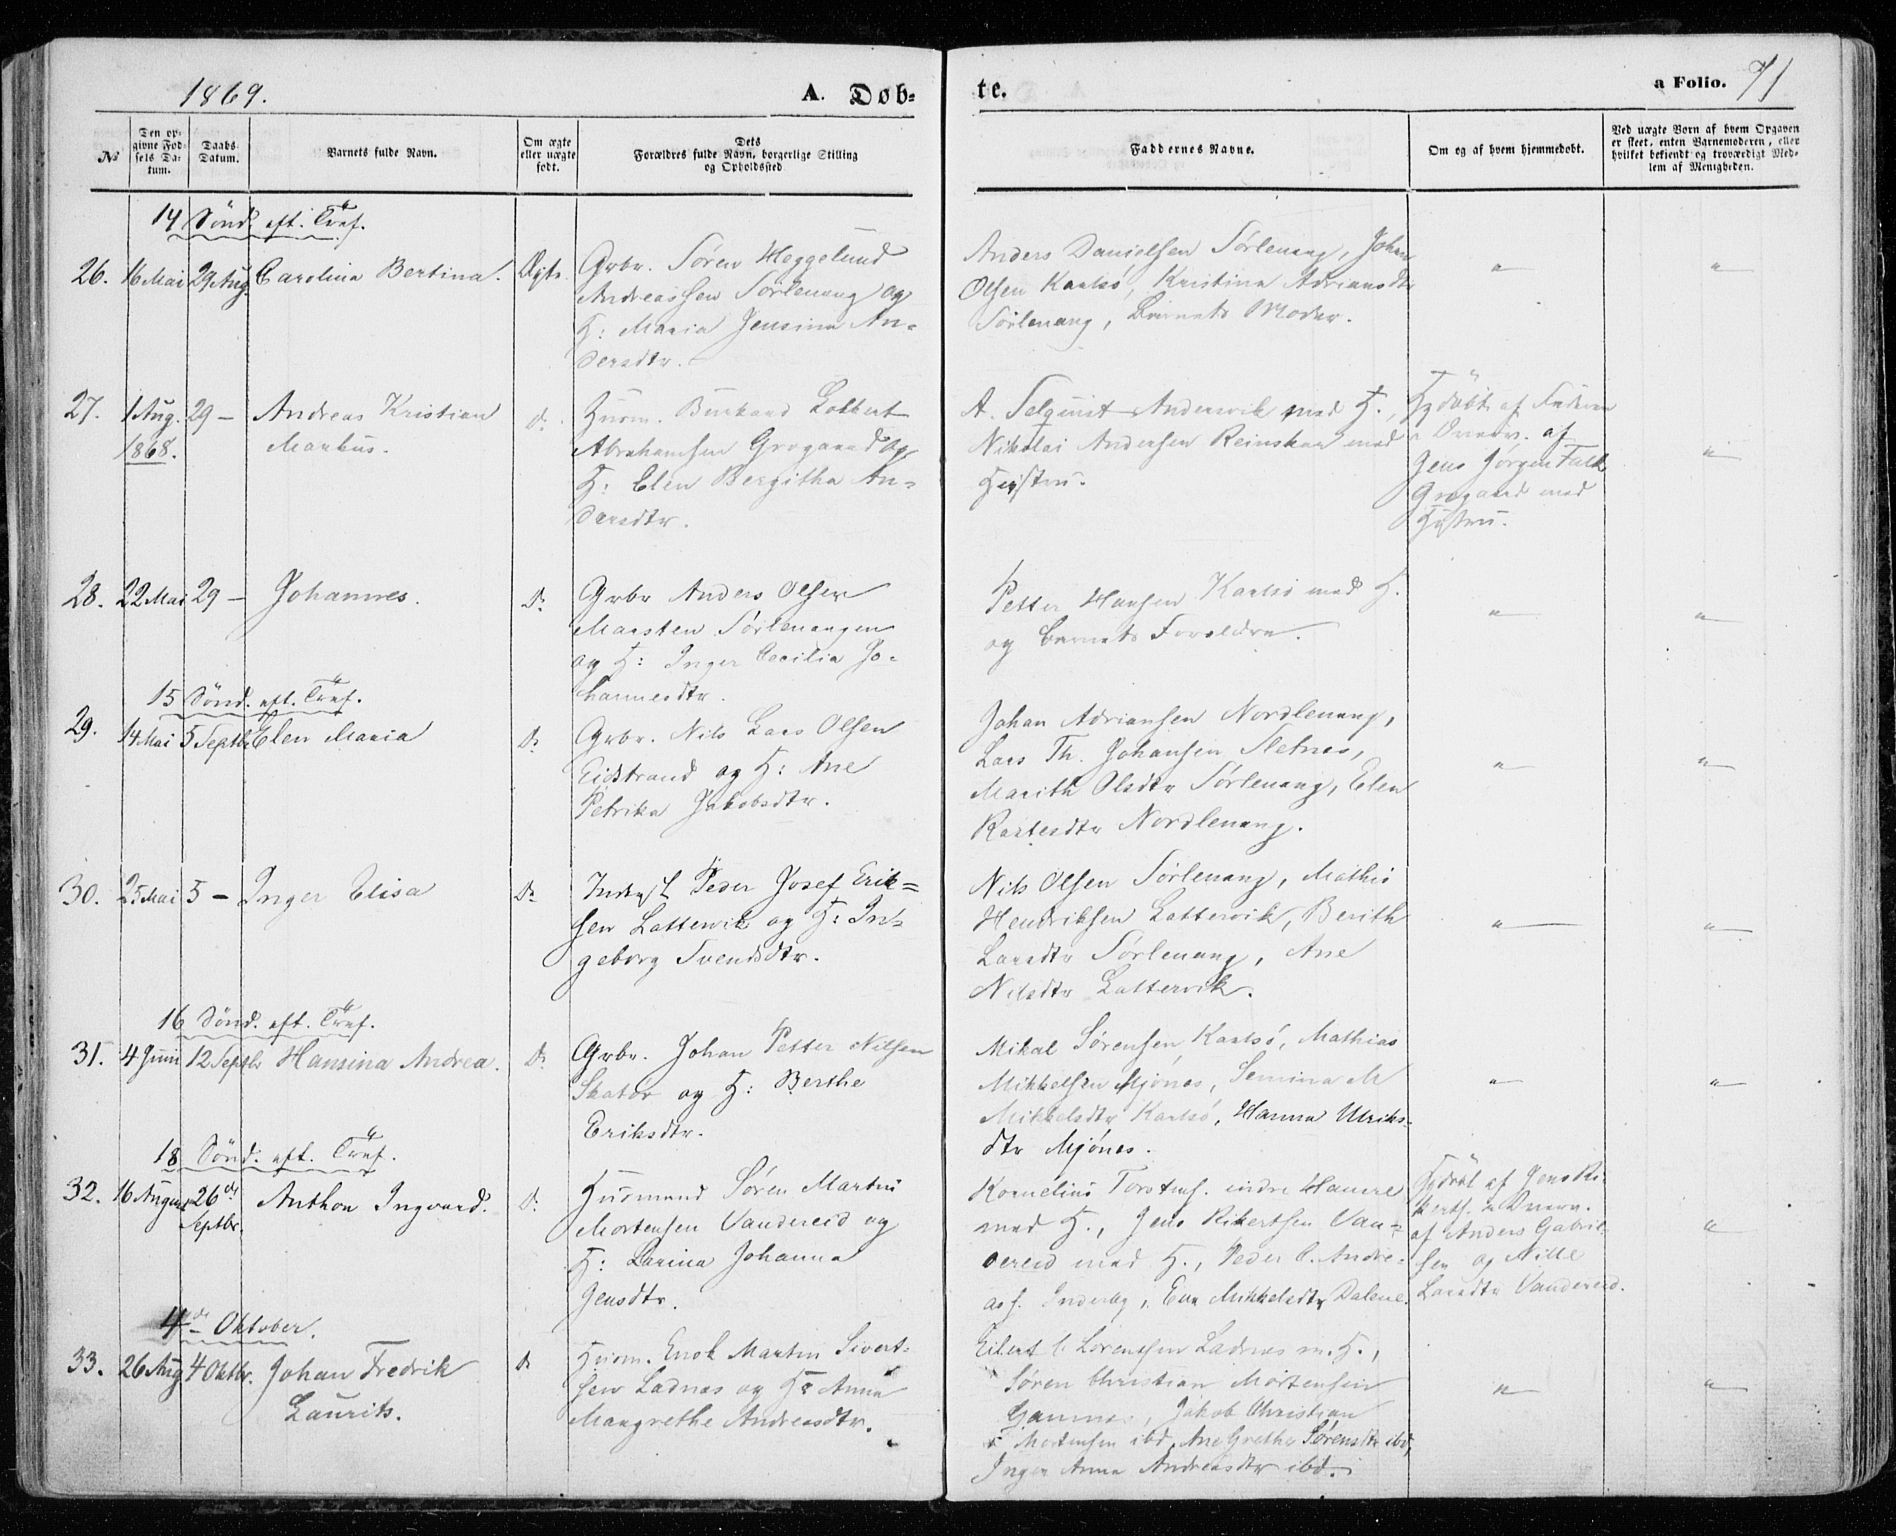 1869.
A. Døb-
te.
a Folio. 71
№
Den op-
givne Fød-
sels Da-
tum.
Daabs
Datum.
Barnets fulde Navn.
Om ægte
eller uægte
født.
Dets
Forældres fulde Navn, borgerlige Stilling
og Opholdssted.
Faddernes Navne.
Om og af hvem hjemmedøbt.
Ved uægte Børn af hvem Opgaven
er skeet, enten Barnemoderen, eller
hvilket bekjendt og troværdigt Med-
lem af Menigheden.
14 Sönd. eft. Tref.
26. 16 Mai 29 Aug. Carolina Bertina. Ægte.
Grbr. Søren Heggelund
Andreassen Sørlenang og
H: Maria Jensina An-
dersdtr.
Anders Danielsen Sørlenang, Johan
Olsen Karlsö, Kristina Adriansdtr
Sörlenang, Barnets Moder.
" "
27. 1 Aug. 29 — Andreas Kristian D.
1868. Markus.
Husm. Burhard Lolbert
Abrahamsen Grogaard og
H: Elen Bergitha An-
dersdtr.
A. Selquist Andersvik med H.,
Nikolai Andersen Reinskar med
Hustru.
Hjdöbt af Faderen
Overv. af
Jens Jørgen Falk
Grogaard med
Hustru.
"
28. 22 Mai 29 — Johannes. D.
Grbr Anders Olsen
Marsten Sörlenangen
og H: Inger Cecilia Jo-
hannesdtr.
Petter Hansen Karlsö med H.
og Barnets Forældre.
" "
15 Sönd. eft. Tref.
29. 14 Mai 5 Septbr Elen Maria D.
Grbr. Nils Lars Olsen
Eidstrand og H: Ane
Petrika Jakobsdtr.
Johan Adriansen Nordlenang,
Lars Th. Johansen Sletnes,
Marith Olsdtr Sørlenang, Elen
Karlesdtr Nordlenang.
" "
30. 25 Mai 5 — Inger Elisa D.
Inderst Peder Josef Erik-
sen Lattervik og H: In-
geborg Svendsdtr.
Nils Olsen Sørlenang, Mathis
Hendriksen Lattervik, Berith
Larsdtr Sørlenang, Ane
Nilsdtr Lattervik.
" "
16 Sönd. eft. Tref.
31. 4 Juni 12 Septbr Hansina Andrea. D.
Grbr. Johan Petter Nilsen
Skatör og H: Berthe
Eriksdtr.
Mikal Sørensen Karlsö, Mathias
Mikkelsen Mjönes, Semina M
Mikkelsdtr Karlsö, Hanna Ulriks-
dtr Mjönes.
" "
18 Sönd. eft. Tref.
32. 16 August 26de Anthon Ingvard. D.
Septbr.
Husmand Sören Martin
Mortensen Vandereid og
H: Larina Johanna
Jensdtr.
Kornelius Torstens. indre Hamre
med H., Jens Rikertsen Van-
dereid med H., Peder C. Andre-
ass. Inderby, Eva Mikkelsdtr Dalene.
Hjdöbt af Jens Ri-
kerts. Overv.
af Anders Gabriel-
sen og Nille
Larsdtr Vandereid.
"
4de Oktober.
33. 26 Aug 4 Oktbr. Johan Fredrik D.
Laurits.
Husm. Enok Martin Sivert-
sen Ladnæs og H: Anna
Margrethe Andreasdtr.
Eilert C Lorentsen Ladnes m. H.,
Søren Christian Mortensen
Gamnes, Jakob Christian
Mortensen ibd, Ane Grethe Sörensdtr ibd,
Inger Anna Andreasdtr ibd.
" "